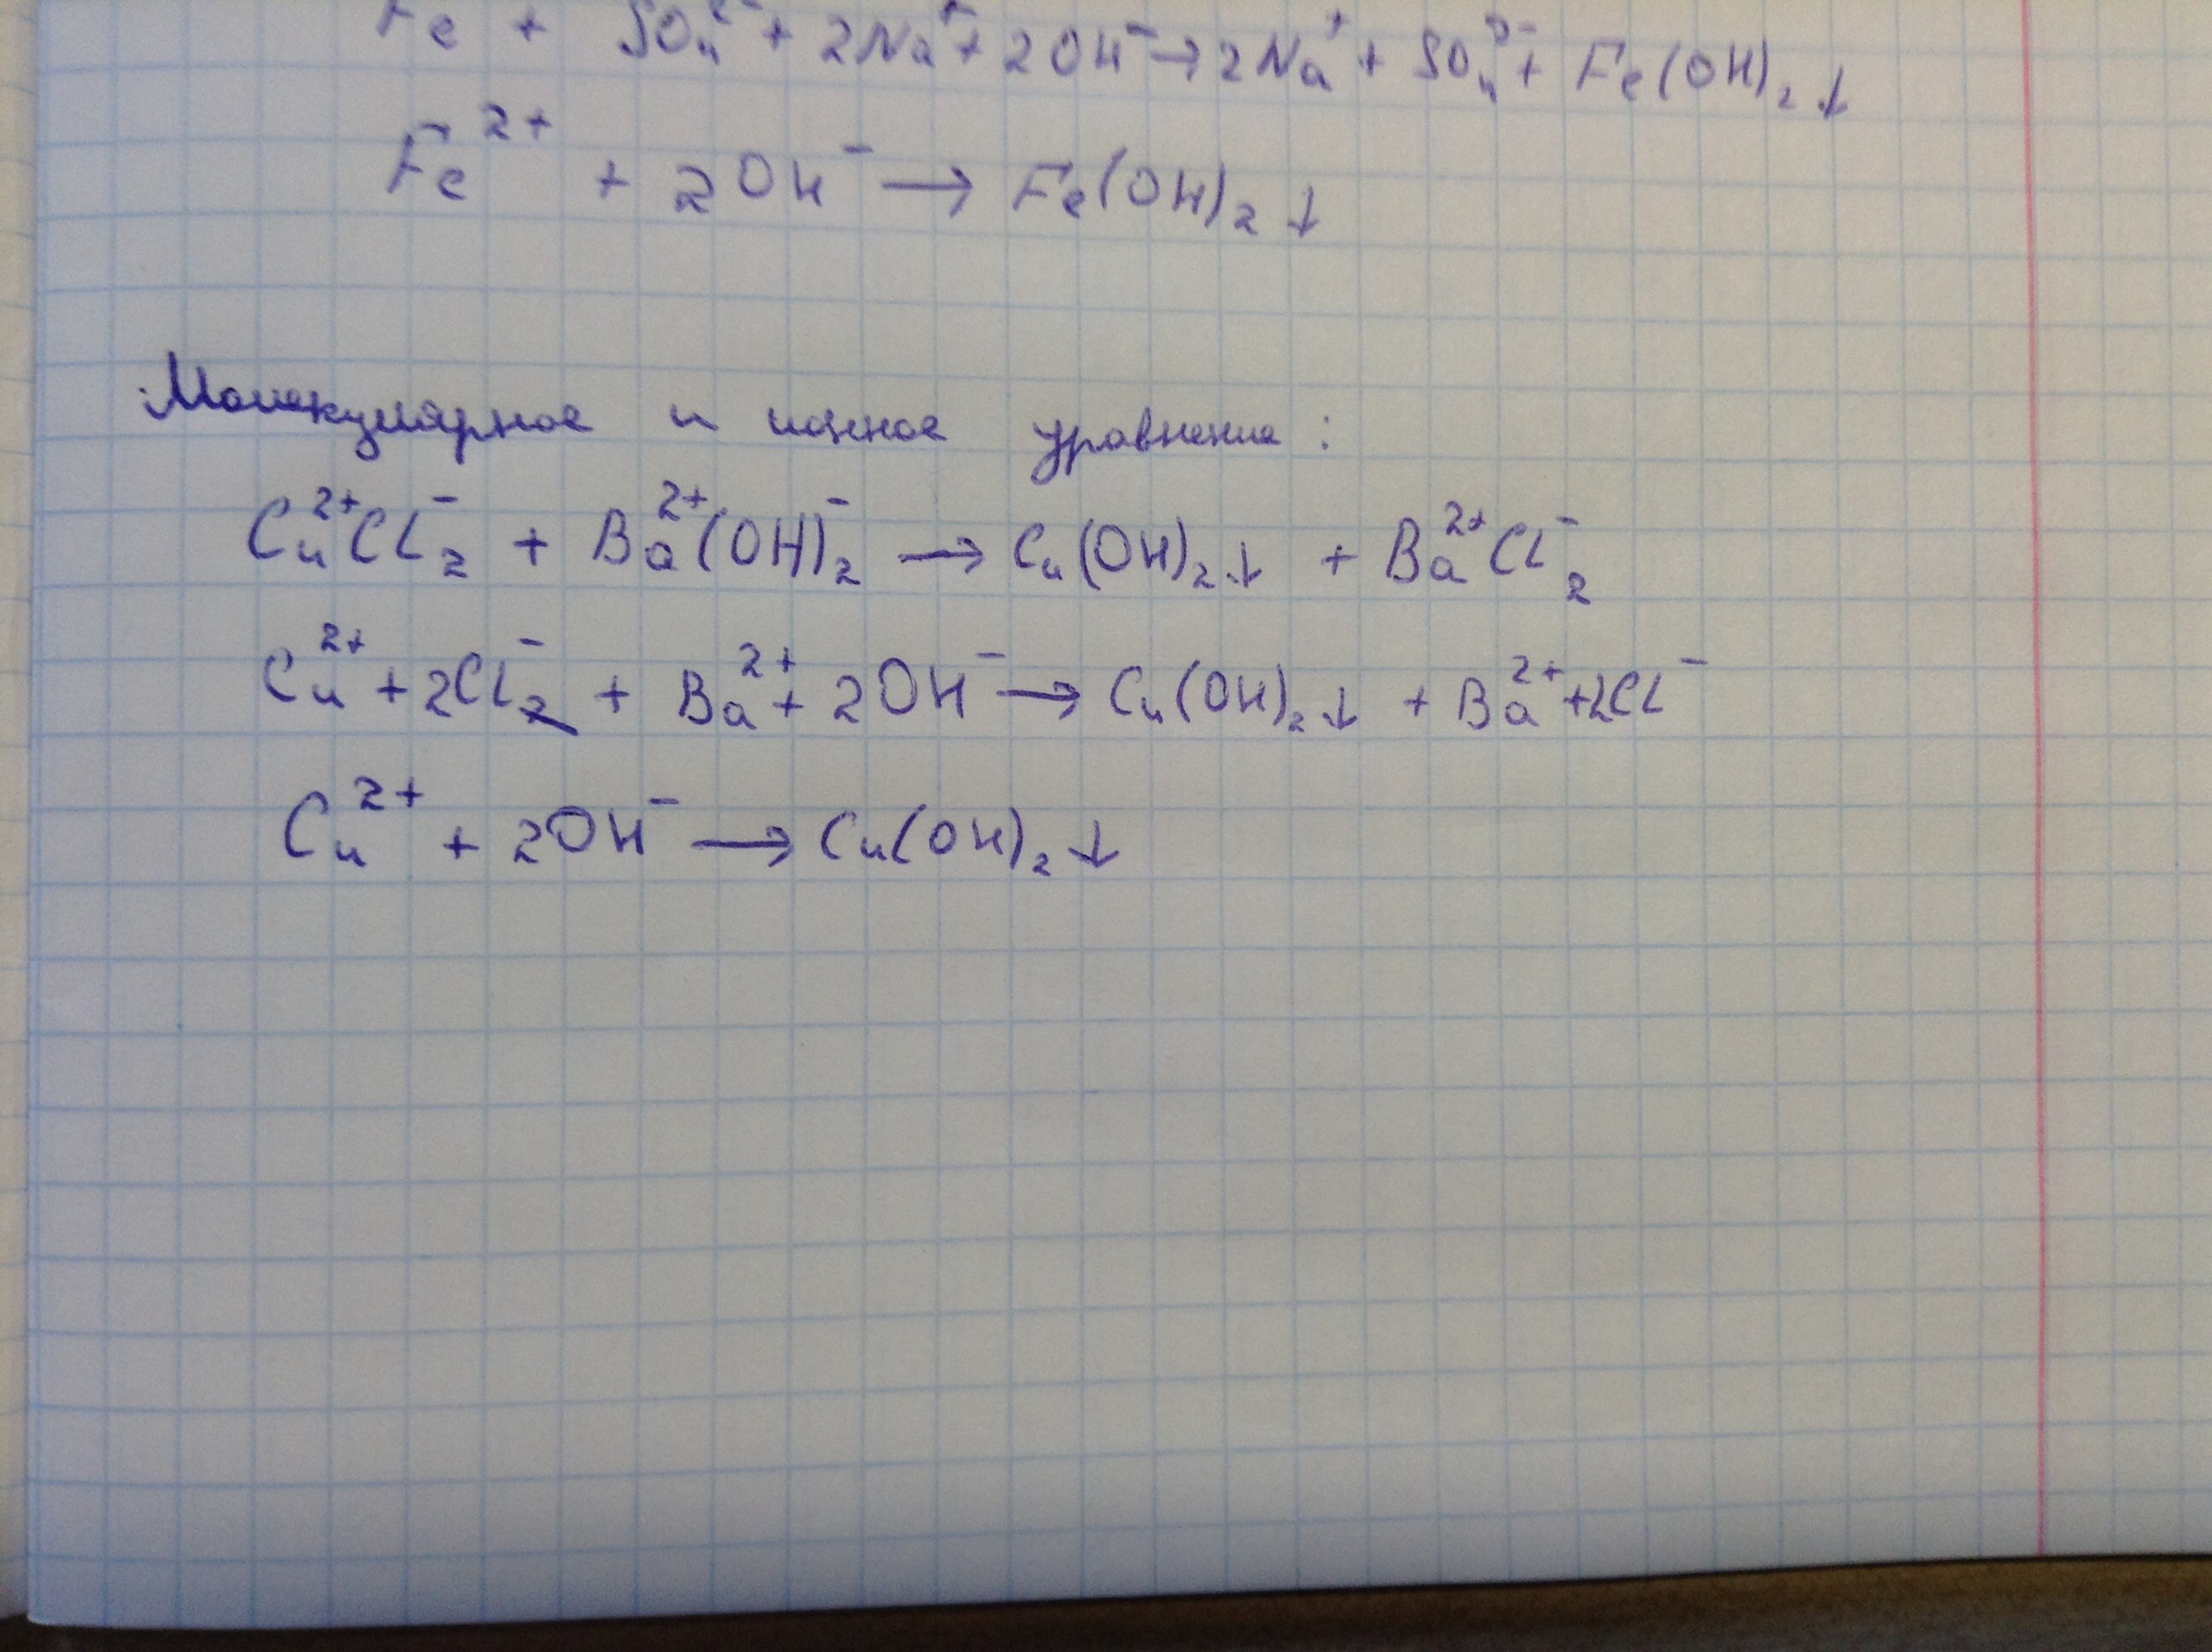 Fe + SO₄²⁻ + 2Na⁺ + 2OH⁻ → 2Na⁺ + SO₄²⁻ + Fe(OH)₂↓
Fe²⁺ + 2OH⁻ → Fe(OH)₂↓
Молекулярное и ионное уравнение:
Cu²⁺Cl⁻₂ + Ba²⁺(OH)⁻₂ → Cu(OH)₂↓ + Ba²⁺Cl⁻₂
Cu²⁺ + 2Cl⁻ + Ba²⁺ + 2OH⁻ → Cu(OH)₂↓ + Ba²⁺ + 2Cl⁻
Cu²⁺ + 2OH⁻ → Cu(OH)₂↓